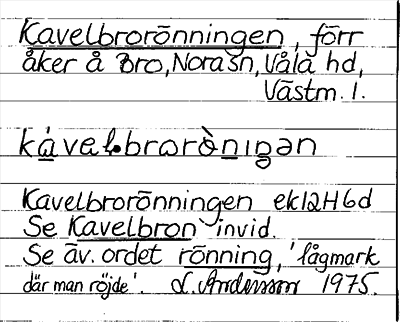 Kavelbrorönningen, förr
åker å Bro, Nora sn, Våla hd,
Västm. l.
kàvel·brorò̱nıŋən
Kavelbrorönningen ek12H6d
Se Kavelbron invid.
Se äv. ordet rönning, 'lågmark
där man röjde'. L. Andersson 1975.